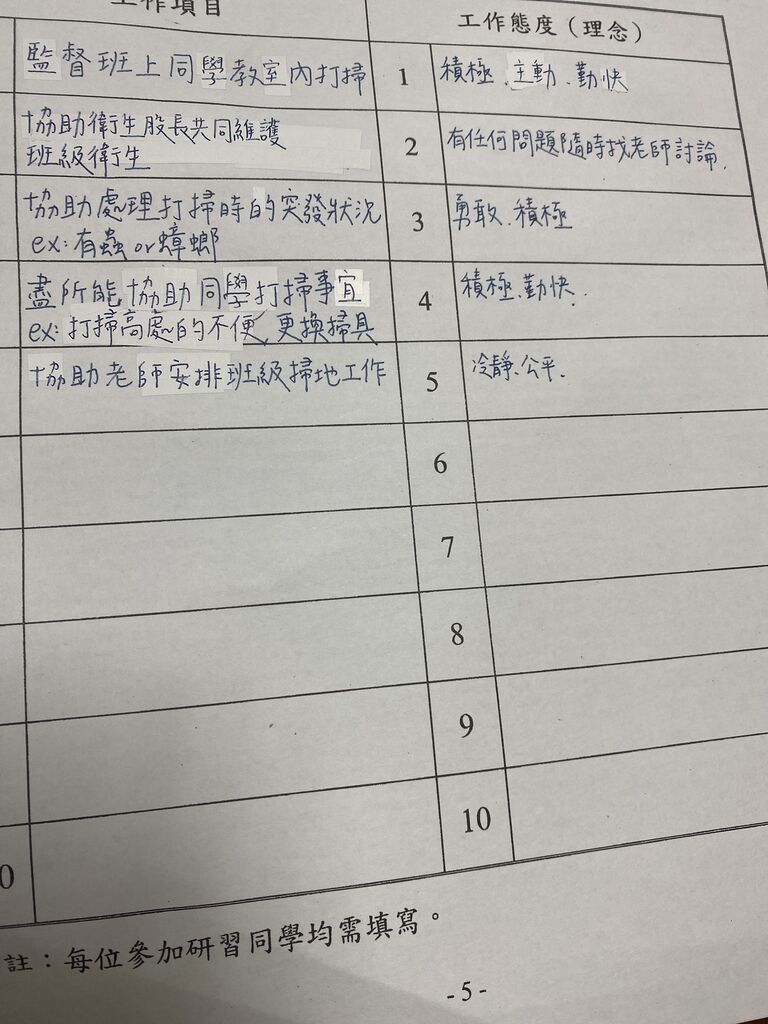 工作項目
工作態度（理念）
監督班上同學教室內打掃
1
積極、主動、勤快
協助衛生股長共同維護
班級衛生
2
有任何問題隨時找老師討論.
協助處理打掃時的突發狀況
ex: 有蟲 or 蟑螂
3
勇敢、積極
盡所能協助同學打掃事宜
ex: 打掃高處的不便、更換掃具
4
積極、勤快.
協助老師安排班級掃地工作
5
冷靜、公平.
6
7
8
9
0
10
註：每位參加研習同學均需填寫。
-5-